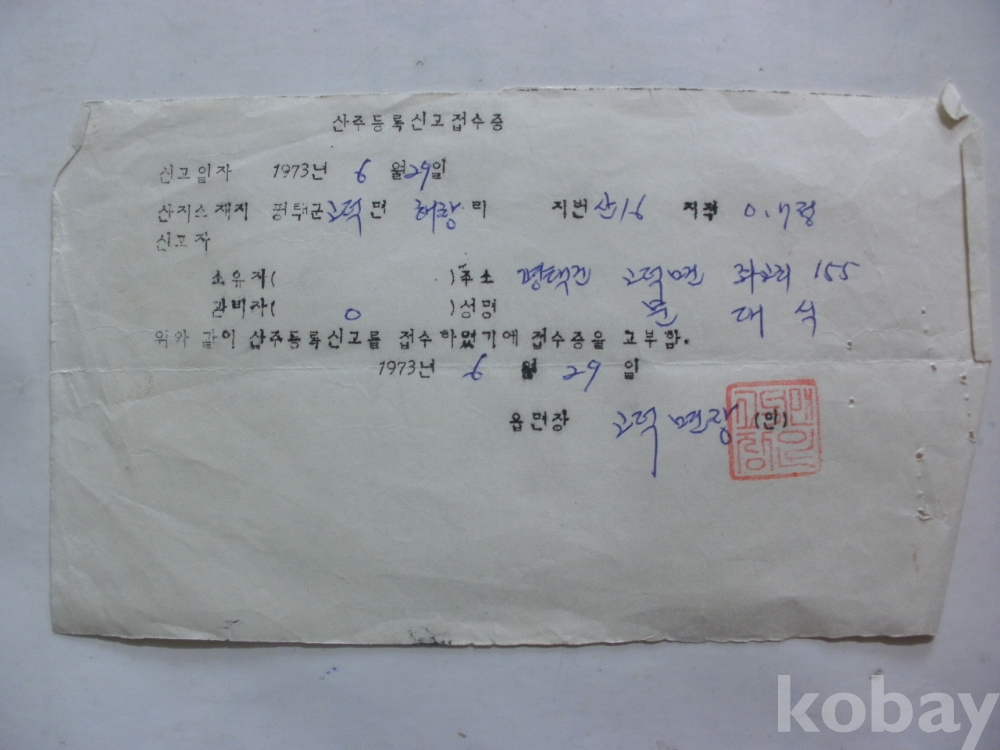 산주등록신고접수증
신고일자 1973년 6 월 29일
산지소재지 평택군 고덕 면 해창 리 지번 산16 지적 0.7정
신고자
소유자( )주소 평택군 고덕면 좌교리 155
관리자( 0 )성명 문 대 식
위와 같이 산주등록신고를 접수하였기에 접수증을 교부함.
1973년 6 월 29 일
읍면장 고덕 면장 (인)
고덕면장인
kobay